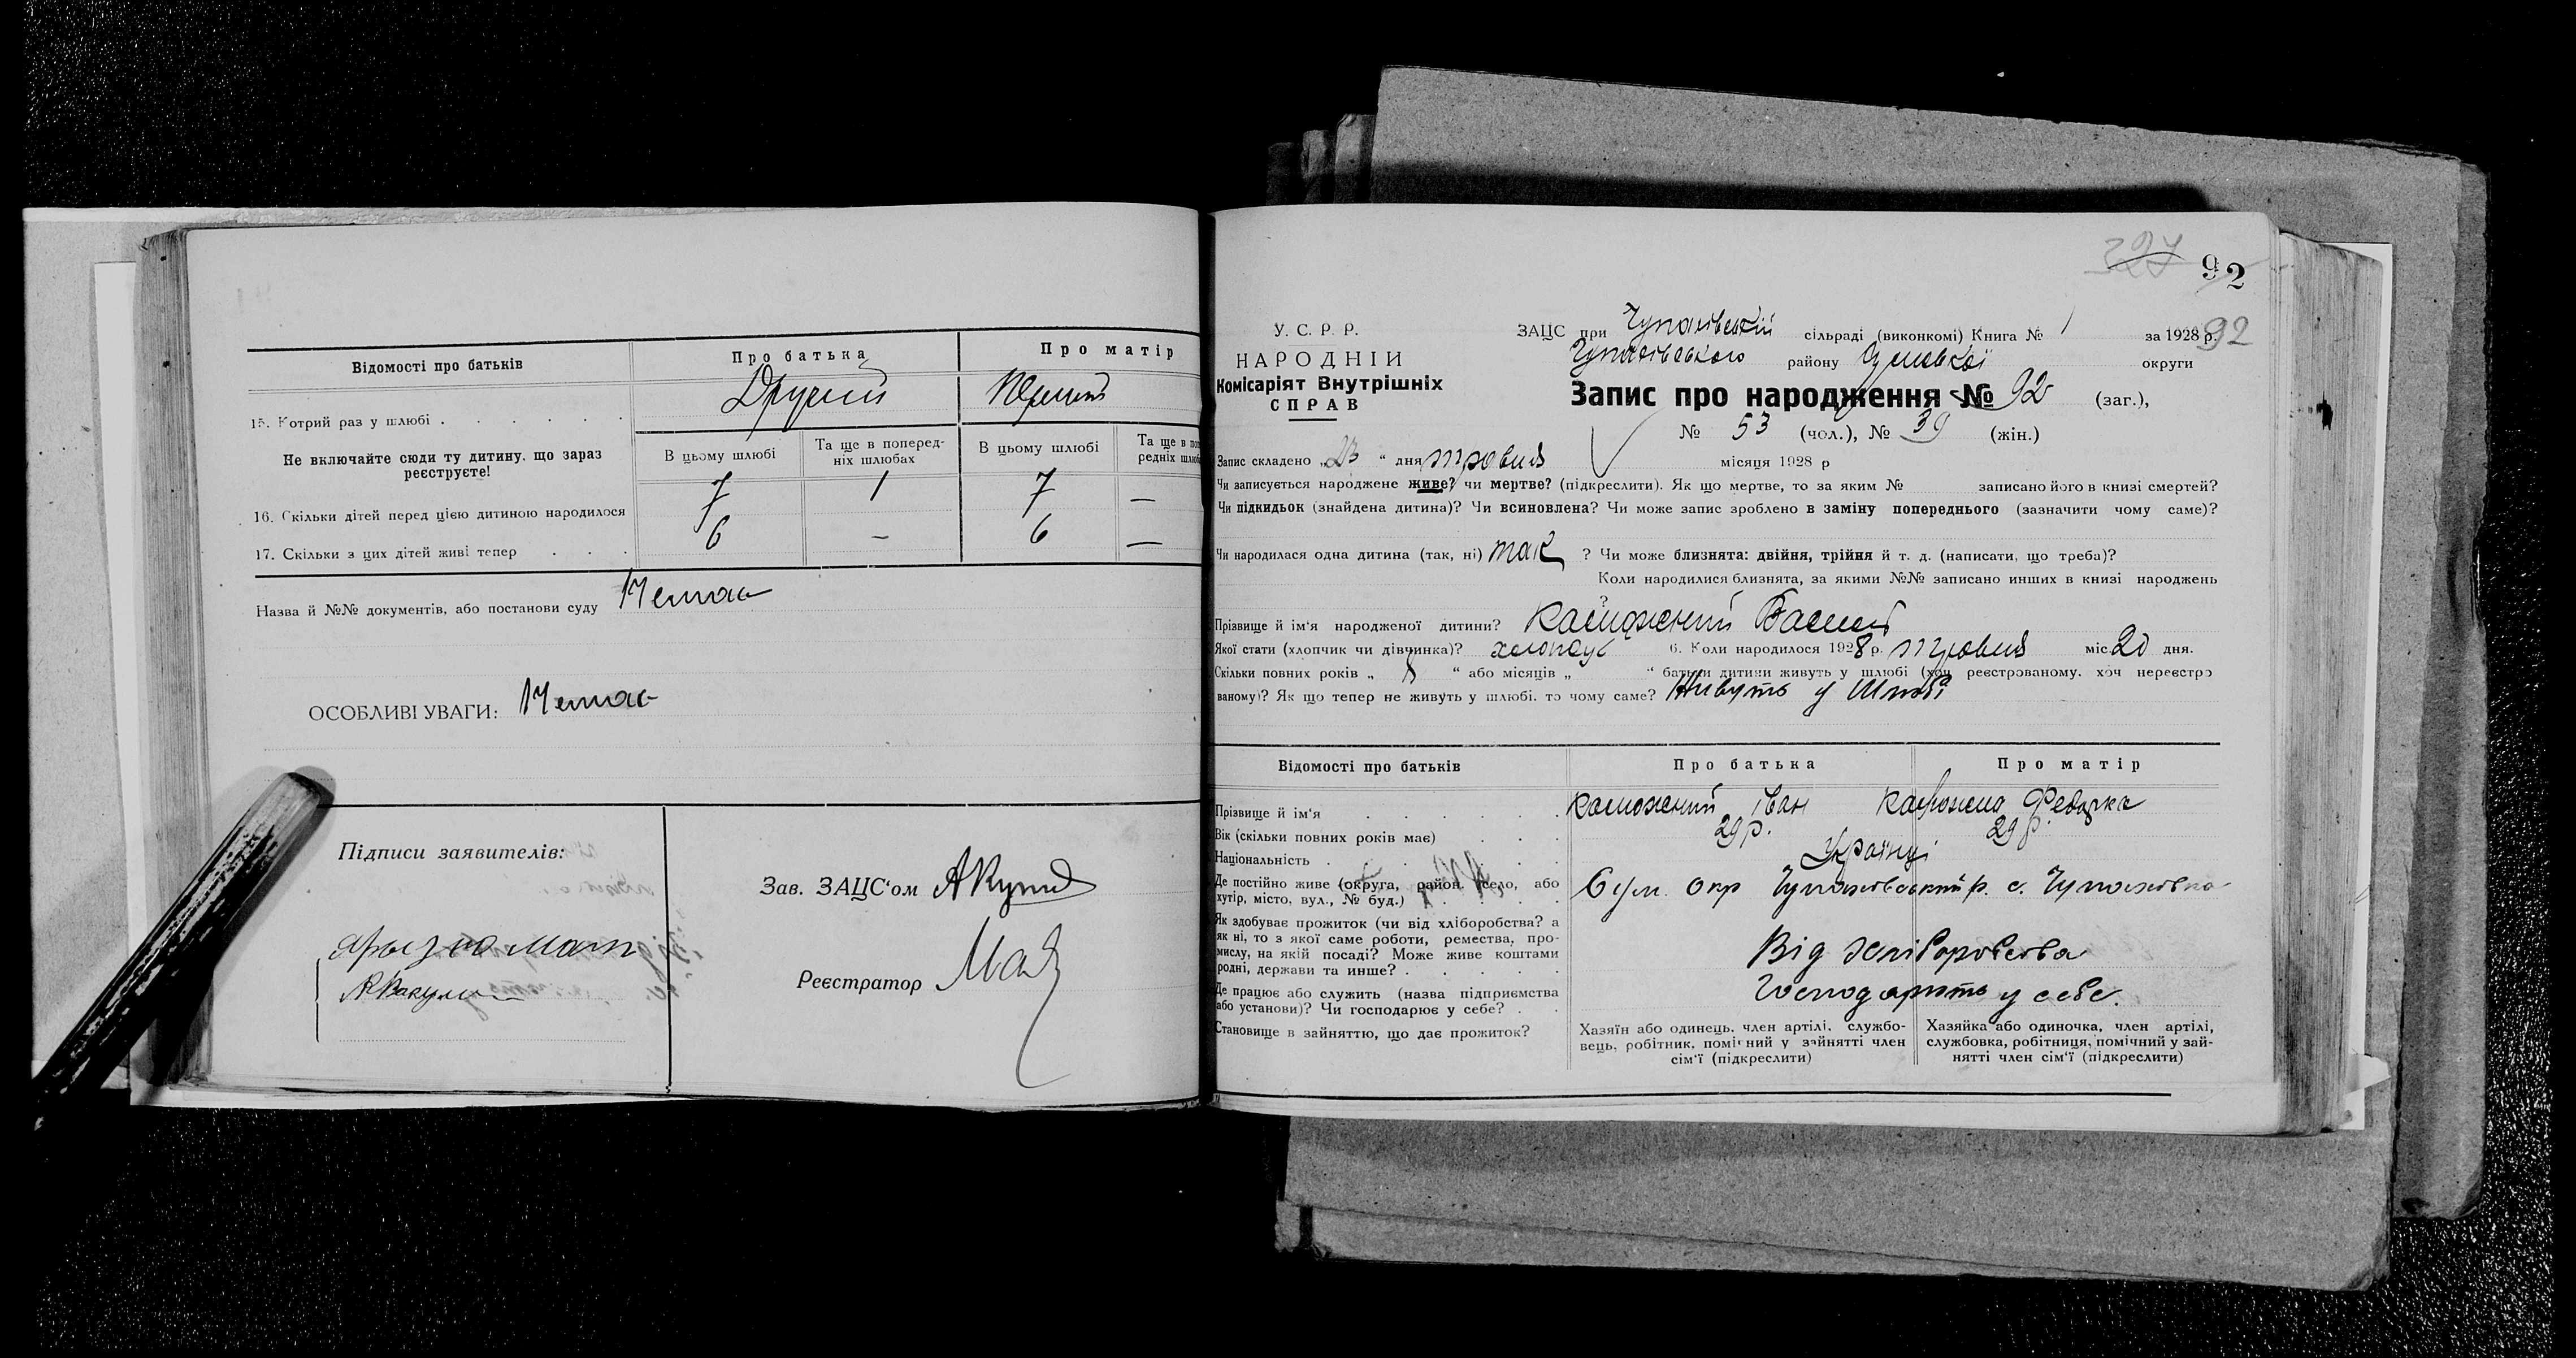 Відомості про батьків
Про батька
Про матір
15. Котрий раз у шлюбі
Другий
Перший
Не включайте сюди ту дитину, що зараз реєструєте!
В цьому шлюбі
Та ще в попередніх шлюбах
В цьому шлюбі
Та ще в
редніх
16. Скільки дітей перед цією дитиною народилося
7 1 7 —
17. Скільки з цих дітей живі тепер
6 — 6 —
Назва й №№ документів, або постанови суду Немає
ОСОБЛИВІ УВАГИ: Немає
Підписи заявителів:
Зав. ЗАЦС'ом
Реєстратор
327
92
У. С. Р. Р.
НАРОДНІЙ
Комісаріят Внутрішніх
СПРАВ
ЗАЦС при Чупахівській сільраді (виконкомі) Книга № 1 за 1928 р.
92
Чупахівського району Сумської округи
Запис про народження № 92 (заг.),
№ 53 (чол.), № 39 (жін.)
Запис складено „23“ дня травня місяця 1928 р
Чи записується народжене живе? чи мертве? (підкреслити). Як що мертве, то за яким № записано його в книзі смертей?
Чи підкидьок (знайдена дитина)? Чи всиновлена? Чи може запис зроблено в заміну попереднього (зазначити чому саме)?
Чи народилася одна дитина (так, ні) так ? Чи може близнята: двійня, трійня й т. д. (написати, що треба)?
Коли народилися близнята, за якими №№ записано инших в книзі народжень
?
Прізвище й ім'я народженої дитини? Василь
Якої стати (хлопчик чи дівчинка)? 6. Коли народилося 1928 р. травня міс 20 дня.
Скільки повних років „ 8 “ або місяців „ “ батьки дитини живуть у шлюбі (хоч реєстрованому, хоч нереєстро
ваному)? Як що тепер не живуть у шлюбі, то чому саме? Живуть у шлюбі
Відомості про батьків
Про батька
Про матір
Прізвище й ім'я
Іван
Вік (скільки повних років має)
29 р.
29 р.
Національність
Українці
Де постійно живе (округа, район, село, або
хутір, місто, вул., № буд.)
Сум. окр Чупахівський р. с. Чупахівка
Як здобуває прожиток (чи від хліборобства? а
як ні, то з якої саме роботи, ремества, про-
мислу, на якій посаді? Може живе коштами
родні, держави та инше?
Від хліборобства
Де працює або служить (назва підприємства
або установи)? Чи господарює у себе?
Господарюють у себе.
Становище в зайняттю, що дає прожиток?
Хазяїн або одинець, член артілі, службо-
вець, робітник, помічний у зайнятті член
сім'ї (підкреслити)
Хазяйка або одиночка, член артілі,
службовка, робітниця, помічний у зай-
нятті член сім'ї (підкреслити)